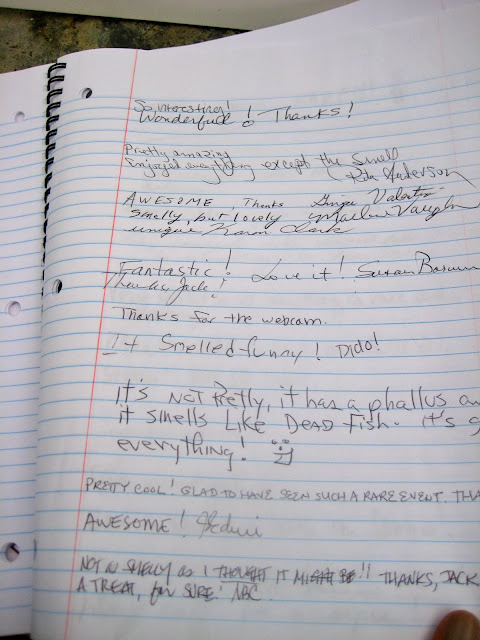 So, interesting!
Wonderfull ! Thanks!
Pretty amazing
Enjoyed everything except the smell
Rita Anderson
AWESOME, Thanks Ginger
smelly, but lovely Marlene Vaughn
unique Karen
Fantastic! Love it! Susan
Thanks Jack!
Thanks for the webcam.
It Smelled funny! Dido!
It's NOT Pretty, it has a phallus an
it smells Like DEAD Fish. It's g
everything!
PRETTY COOL! GLAD TO HAVE SEEN SUCH A RARE EVENT. THA
AWESOME!
NOT AS SMELLY as I THOUGHT IT MIGHT BE!! THANKS, JACK
A TREAT, for SURE!